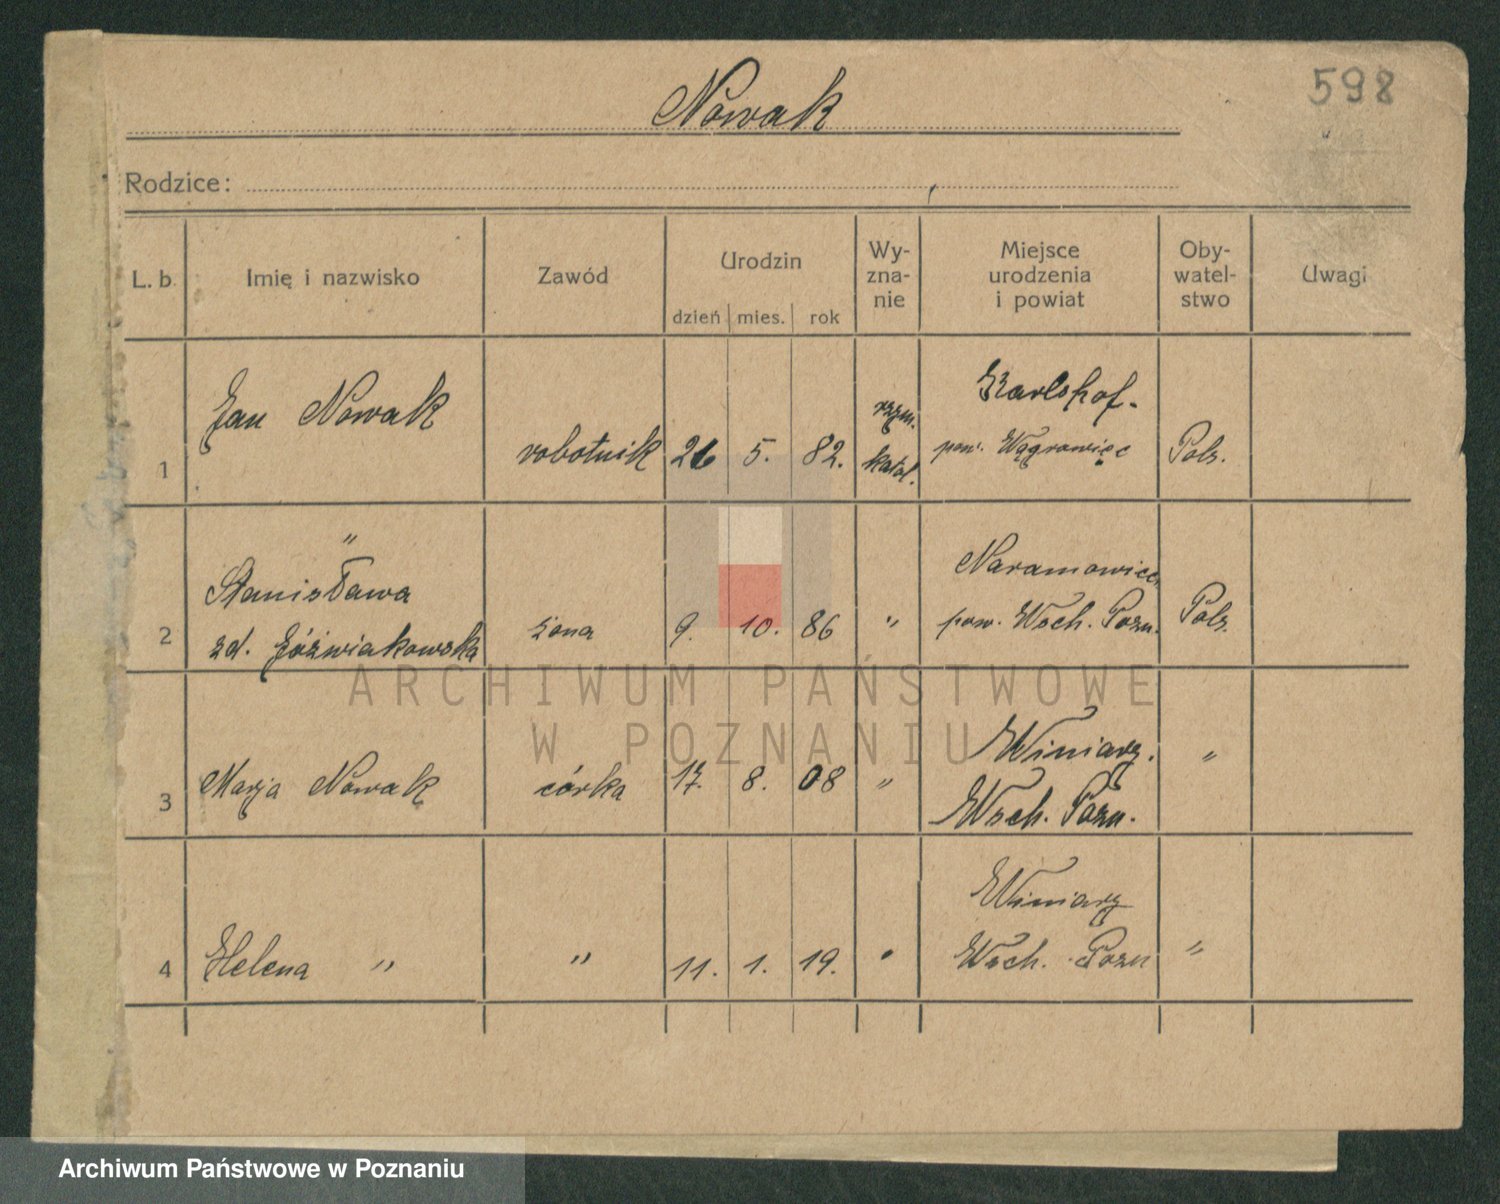 598
Nowak
Rodzice:
L. b.
Imię i nazwisko
Zawód
Urodzin
dzień
mies.
rok
Wy-
zna-
nie
Miejsce
urodzenia
i powiat
Oby-
watel-
stwo
Uwagi
1
Jan Nowak
robotnik
26
5.
82.
rzym.
katol.
Karlshof.
pow. Wągrowiec
Pols.
2
"
Stanisława
zd. Jóźwiakowska
żona
9.
10.
86
"
Naramowice
pow. Wsch. Pozn.
Pols.
3
Marja Nowak
córka
17.
8.
08
"
Winiary.
Wsch. Pozn.
"
4
Helena "
"
11.
1.
19.
"
Winiary
Wsch. Pozn
"
ARCHIWUM PAŃSTWOWE
W POZNANIU
Archiwum Państwowe w Poznaniu